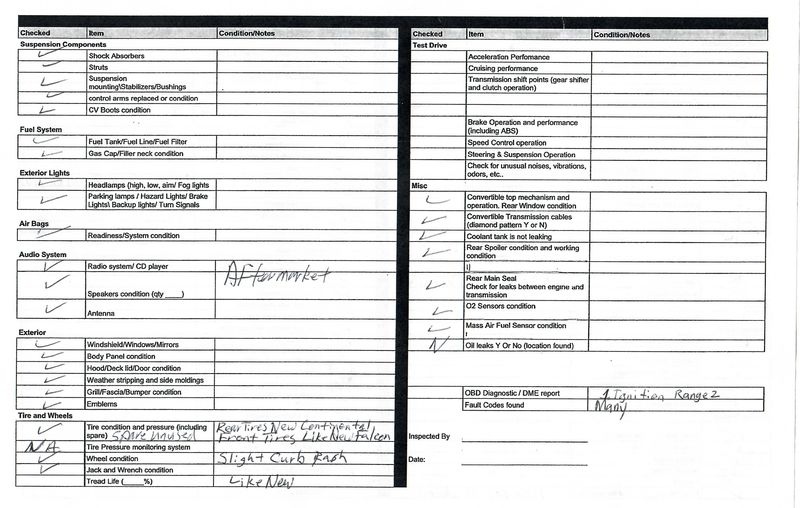 Checked Item Condition/Notes
Suspension Components
Shock Absorbers
Struts
Suspension
mounting\Stabilizers/Bushings
control arms replaced or condition
CV Boots condition
Fuel System
Fuel Tank/Fuel Line/Fuel Filter
Gas Cap/Filler neck condition
Exterior Lights
Headlamps (high, low, aim/ Fog lights
Parking lamps / Hazard Lights/ Brake
Lights\ Backup lights/ Turn Signals
Air Bags
Readiness/System condition
Audio System
Radio system/ CD player Aftermarket
Speakers condition (qty ____)
Antenna
Exterior
Windshield/Windows/Mirrors
Body Panel condition
Hood/Deck lid/Door condition
Weather stripping and side moldings
Grill/Fascia/Bumper condition
Emblems
Tire and Wheels
Tire condition and pressure (including Rear Tires New Continental
spare) Spare unused Front Tires Like New Falcon
NA Tire Pressure monitoring system
Wheel condition Slight Curb Rash
Jack and Wrench condition
Tread Life (____%) Like New
Checked Item Condition/Notes
Test Drive
Acceleration Perfomance
Cruising performance
Transmission shift points (gear shifter
and clutch operation)
Brake Operation and performance
(including ABS)
Speed Control operation
Steering & Suspension Operation
Check for unusual noises, vibrations,
odors, etc..
Misc
Convertible top mechanism and
operation. Rear Window condition
Convertible Transmission cables
(diamond pattern Y or N)
Coolant tank is not leaking
Rear Spoiler condition and working
condition
Rear Main Seal
Check for leaks between engine and
transmission
O2 Sensors condition
Mass Air Fuel Sensor condition
N Oil leaks Y Or No (location found)
OBD Diagnostic / DME report 1 Ignition Range 2
Fault Codes found Many
Inspected By
Date: